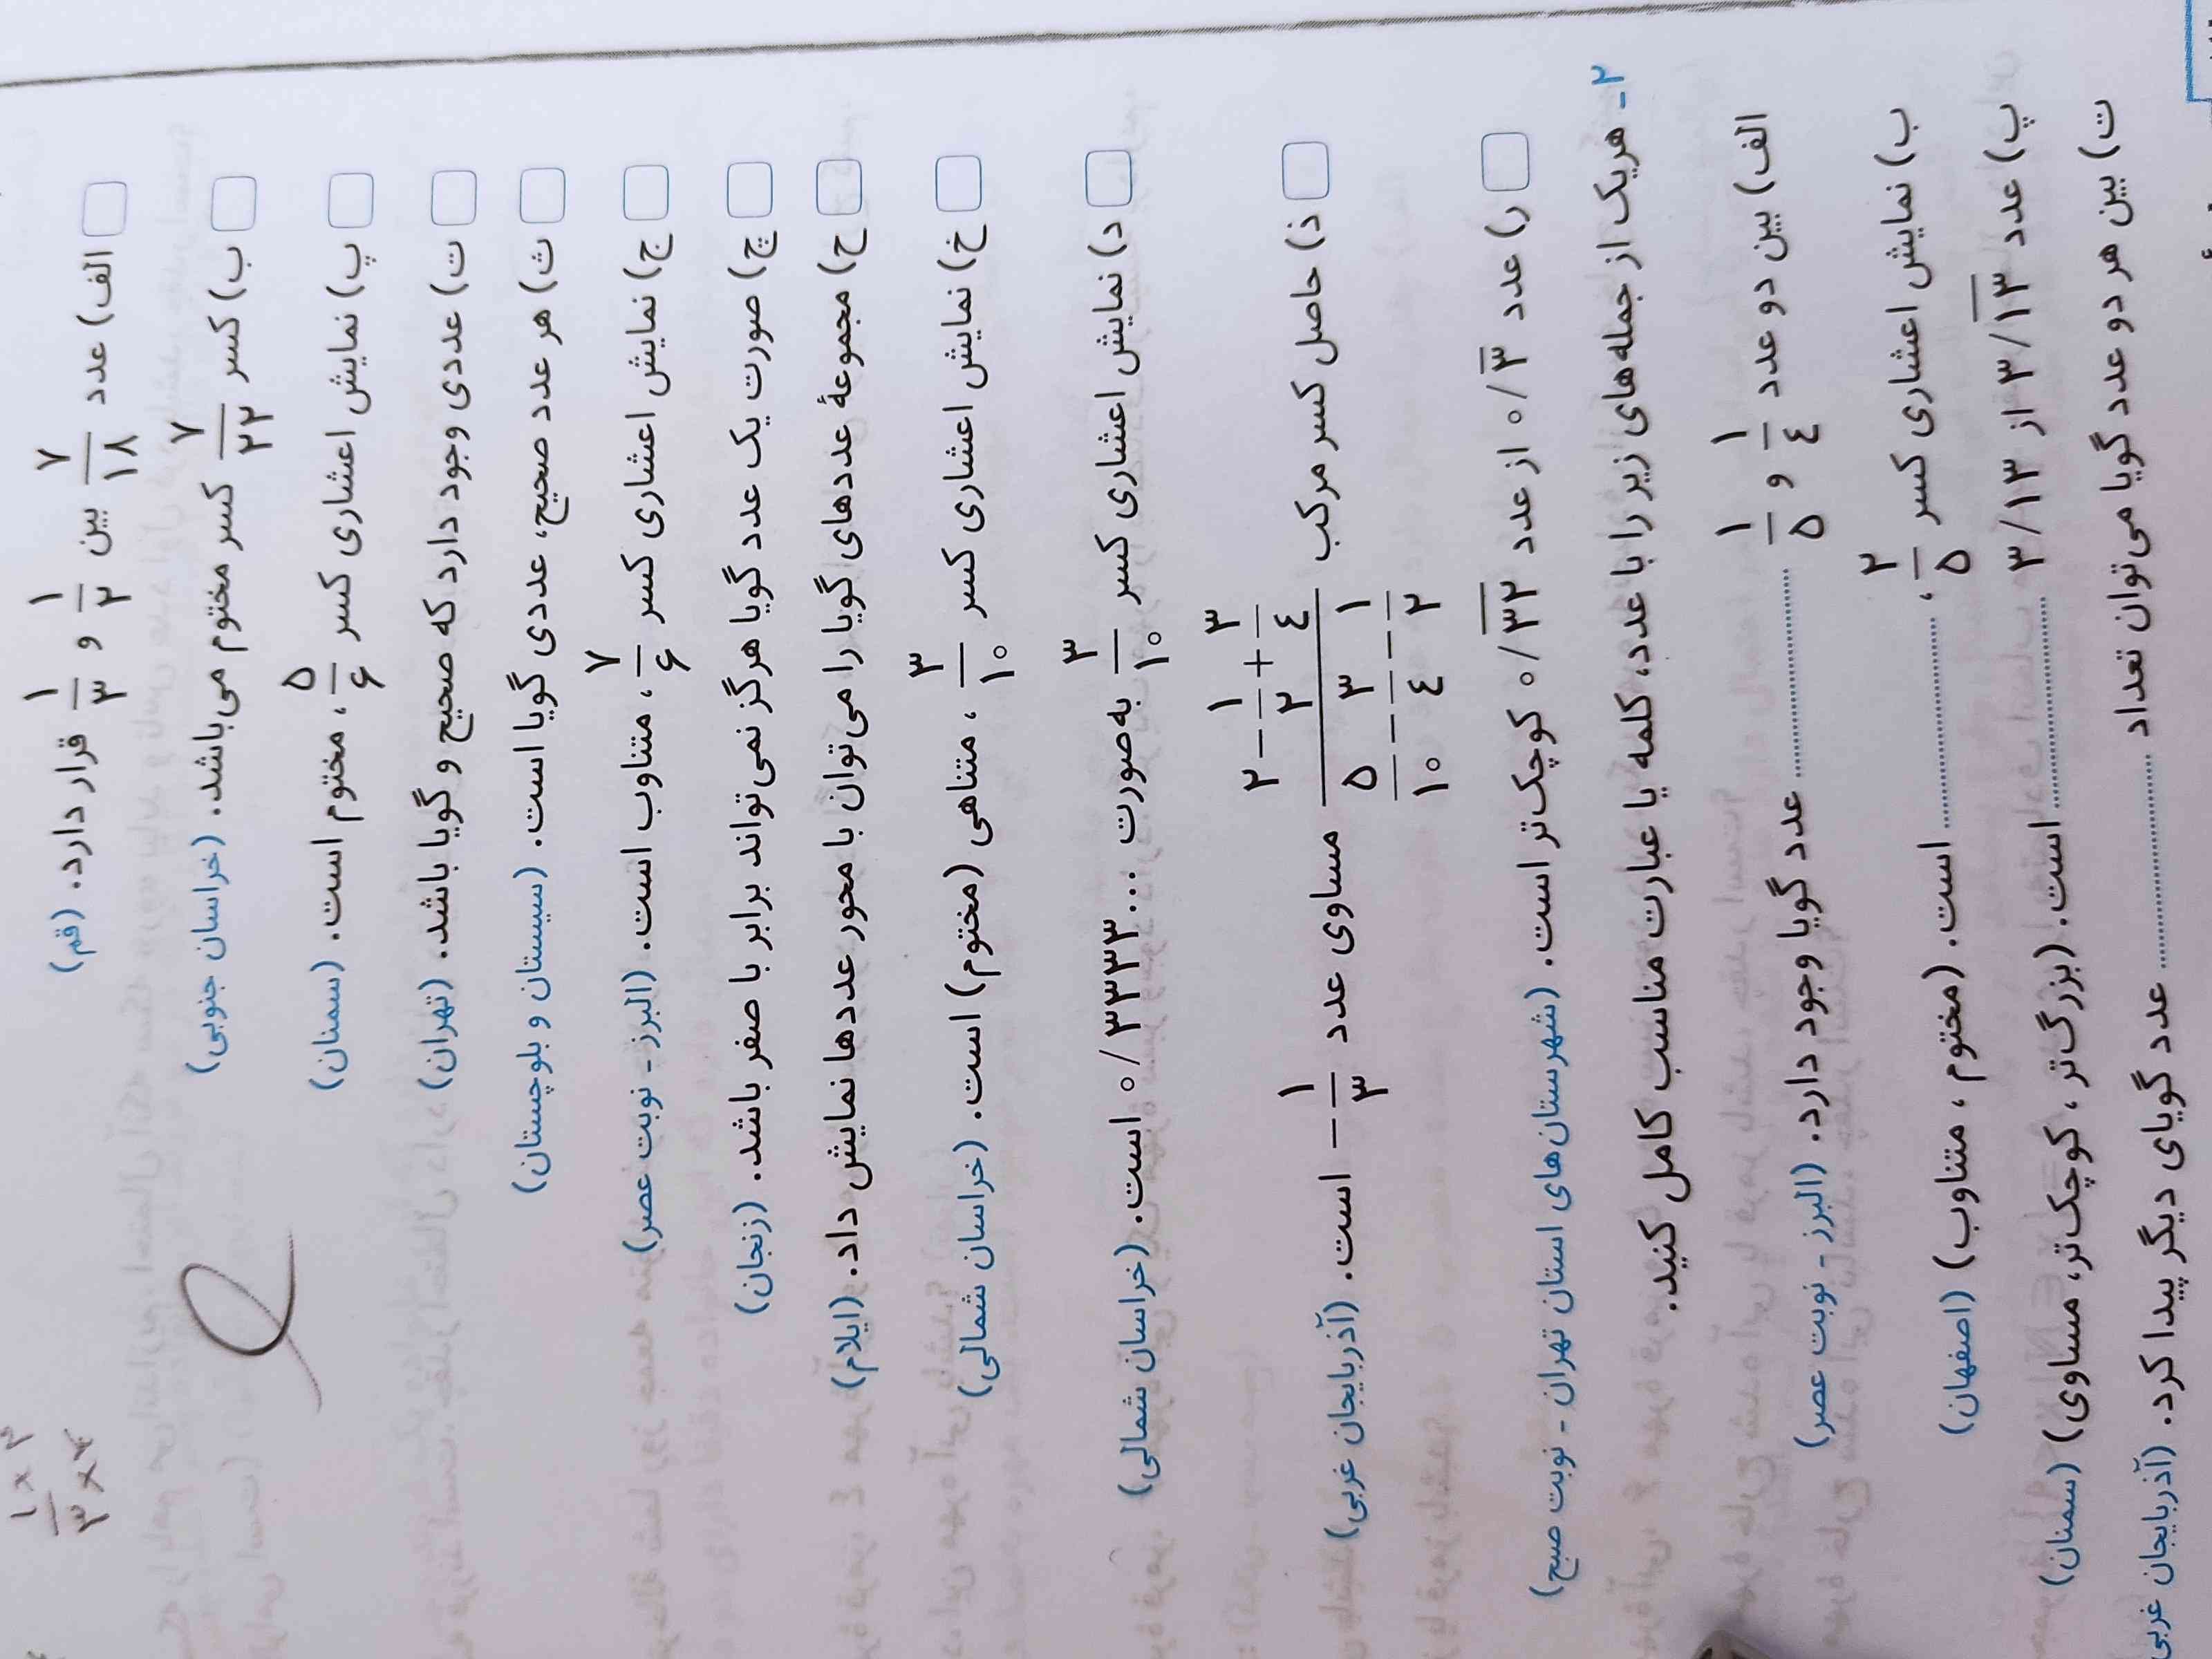 الف) عدد ۷/۱۸ بین ۱/۲ و ۱/۳ قرار دارد. (قم)
ب) کسر ۷/۲۲ کسر مختوم می‌باشد. (خراسان جنوبی)
پ) نمایش اعشاری کسر ۵/۶، مختوم است. (سمنان)
ت) عددی وجود دارد که صحیح و گویا باشد. (تهران)
ث) هر عدد صحیح، عددی گویا است. (سیستان و بلوچستان)
ج) نمایش اعشاری کسر ۷/۶، متناوب است. (البرز - نوبت عصر)
چ) صورت یک عدد گویا هرگز نمی‌تواند برابر با صفر باشد. (زنجان)
ح) مجموعهٔ عددهای گویا را می‌توان با محور عددها نمایش داد. (ایلام)
خ) نمایش اعشاری کسر ۳/۱۰، متناهی (مختوم) است. (خراسان شمالی)
د) نمایش اعشاری کسر ۳/۱۰ به‌صورت ...۰/۳۳۳۳ است. (خراسان شمالی)
ذ) حاصل کسر مرکب (۲ - ۱/۲ + ۳/۴)/(۵/۱۰ - ۳/۴ - ۱/۲) مساوی عدد -۱/۳ است. (آذربایجان غربی)
ر) عدد ۰/۳̅ از عدد ۰/۳̅۲̅ کوچک‌تر است. (شهرستان‌های استان تهران - نوبت صبح)
۲- هریک از جمله‌های زیر را با عدد، کلمه یا عبارت مناسب کامل کنید.
الف) بین دو عدد ۱/۴ و ۱/۵ .................... عدد گویا وجود دارد. (البرز - نوبت عصر)
ب) نمایش اعشاری کسر ۲/۵، .................... است. (مختوم، متناوب) (اصفهان)
پ) عدد ۳/۱̅۳̅ از ۳/۱۳ .................... است. (بزرگ‌تر، کوچک‌تر، مساوی) (سمنان)
ت) بین هر دو عدد گویا می‌توان تعداد .................... عدد گویای دیگر پیدا کرد. (آذربایجان غربی